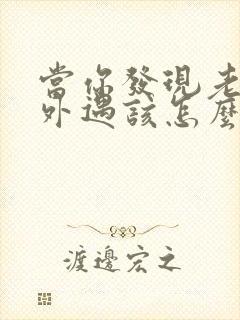 當你發現老
外遇該怎麼
渡邊宏之